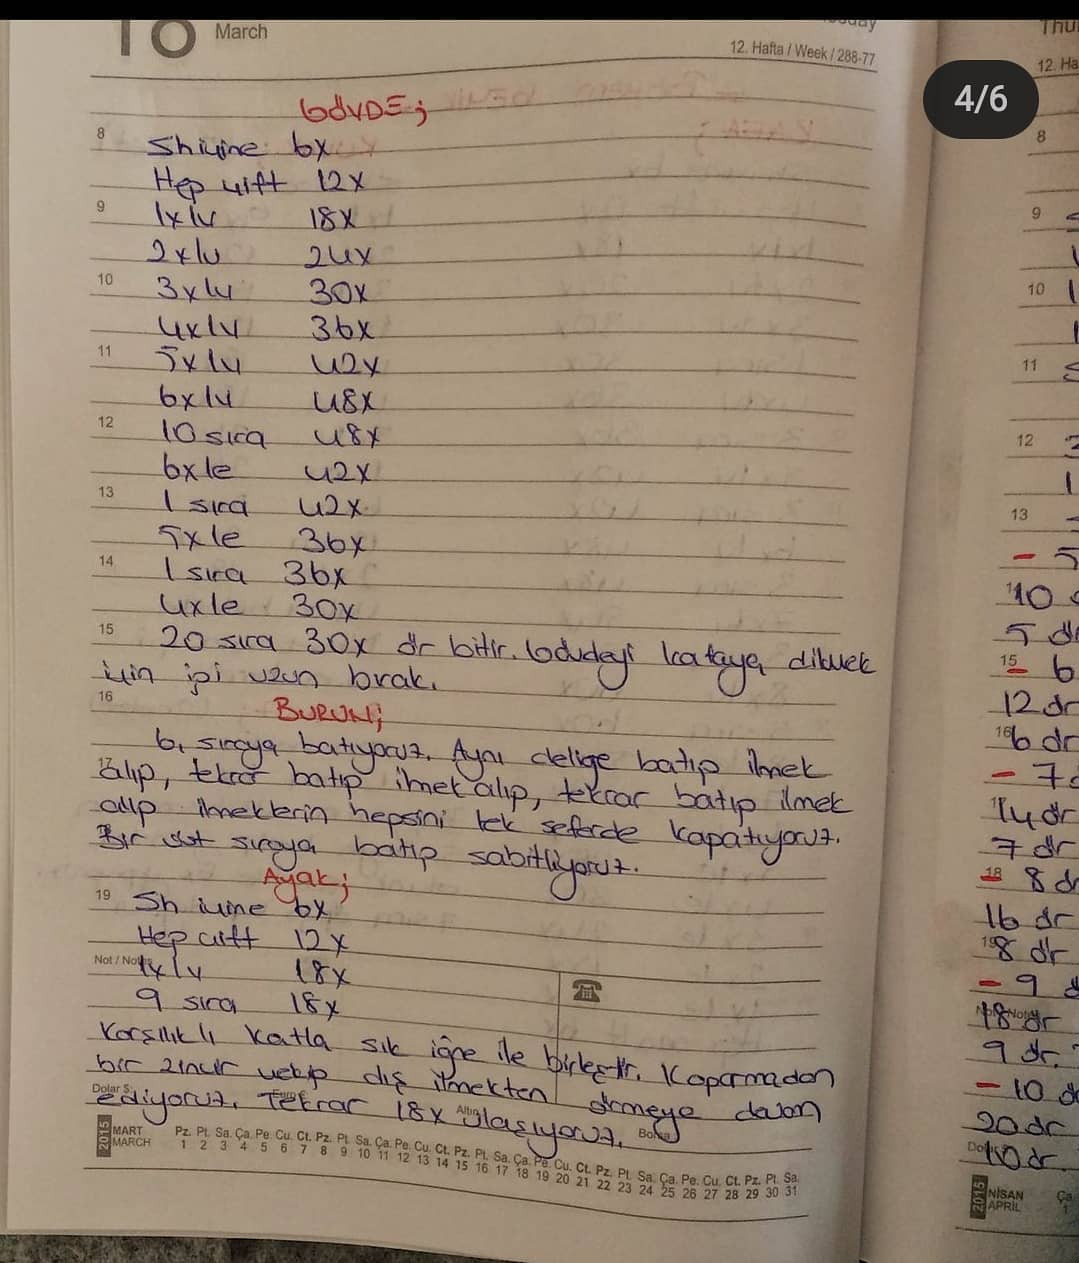 18 March
12. Hafta / Week / 288-77
4/6
GövDE;
8 Sh içine 6x
Hep çift 12x
9 1x1v 18x
2x1v 24x
10 3x1v 30x
4x1v 36x
11 5x1v 42x
6x1v 48x
12 10 sıra 48x
6x1e 42x
13 1 sıra 42x
5x1e 36x
14 1 sıra 36x
4x1e 30x
15 20 sıra 30x ör bitir. Gövdeyi kafaya dikmek
için ipi uzun bırak.
16 BURUN;
6. sıraya batıyoruz. Aynı deliğe batıp ilmek
alıp, tekrar batıp ilmek alıp, tekrar batıp ilmek
alıp ilmeklerin hepsini tek seferde kapatıyoruz.
Bir üst sıraya batıp sabitliyoruz.
Ayak;
19 Sh içine 6x
Hep çift 12x
Not / Note 1x1v 18x
9 sıra 18x
Karşılıklı katla sık iğne ile birleştir. Koparmadan
bir zincir çekip dış ilmekten örmeye devam
ediyoruz. Tekrar 18x ulaşıyoruz.
Dolar $ Altın Borsa
2015 MART MARCH
Pz. Pt. Sa. Ça. Pe. Cu. Ct. Pz. Pt. Sa. Ça. Pe. Cu. Ct. Pz. Pt. Sa. Ça. Pe. Cu. Ct. Pz. Pt. Sa. Ça. Pe. Cu. Ct. Pz. Pt. Sa.
1 2 3 4 5 6 7 8 9 10 11 12 13 14 15 16 17 18 19 20 21 22 23 24 25 26 27 28 29 30 31
Thu
12. Ha
8
9
10
11
12
13
- 5
10
5 ör
15 6
12 ör
16 6 ör
- 7
14 ör
7 ör
18 8 ör
16 ör
19 8 ör
- 9
18 ör
9 ör.
- 10
20 ör
10 ör.
2015 NİSAN APRIL
Ça
1